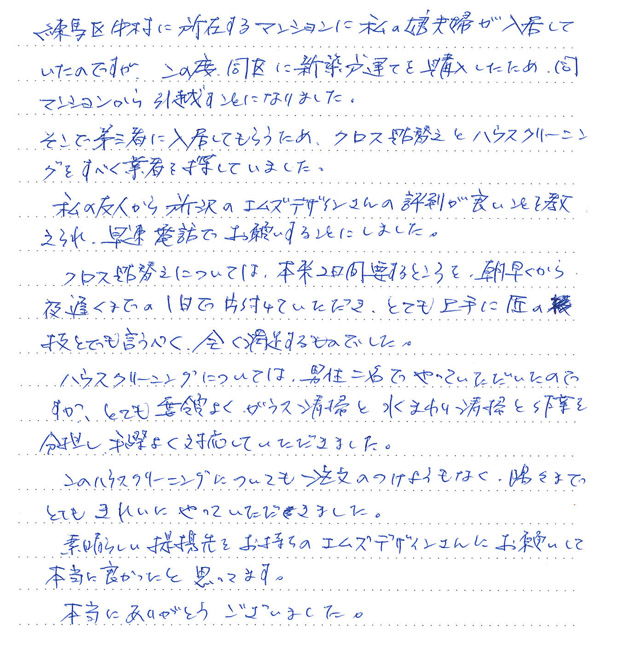 練馬区中村に所在するマンションに私の娘夫婦が入居して
いたのですが、この度、同区に新築戸建てを購入したため、同
マンションから引越すことになりました。
そこで第三者に入居してもらうため、クロス貼替えとハウスクリーニン
グをすべく業者を探していました。
私の友人から所沢のエムズデザインさんの評判が良いことを教
えられ、早速電話でお願いすることにしました。
クロス貼替えについては、本来2日間要するところを、朝早くから
夜遅くまでの1日で片付けていただき、とても上手に匠の
技とでも言うべく、全く満足するものでした。
ハウスクリーニングについては、男性二名でやっていただいたので
すが、とても要領よくガラス清掃と水まわり清掃と作業を
分担し、手際よく対応していただきました。
このハウスクリーニングについても注文のつけようもなく、隅々まで
とてもきれいにやっていただきました。
素晴らしい提携先をお持ちのエムズデザインさんにお願いして
本当に良かったと思ってます。
本当にありがとうございました。